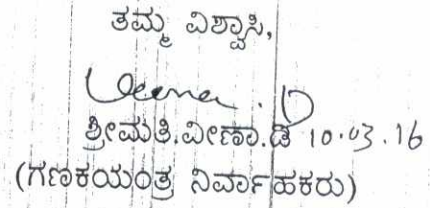 ತಮ್ಮ ವಿಶ್ವಾಸಿ,
Veena . D
ಶ್ರೀಮತಿ.ವೀಣಾ.ಡಿ 10.03.16
(ಗಣಕಯಂತ್ರ ನಿರ್ವಾಹಕರು)